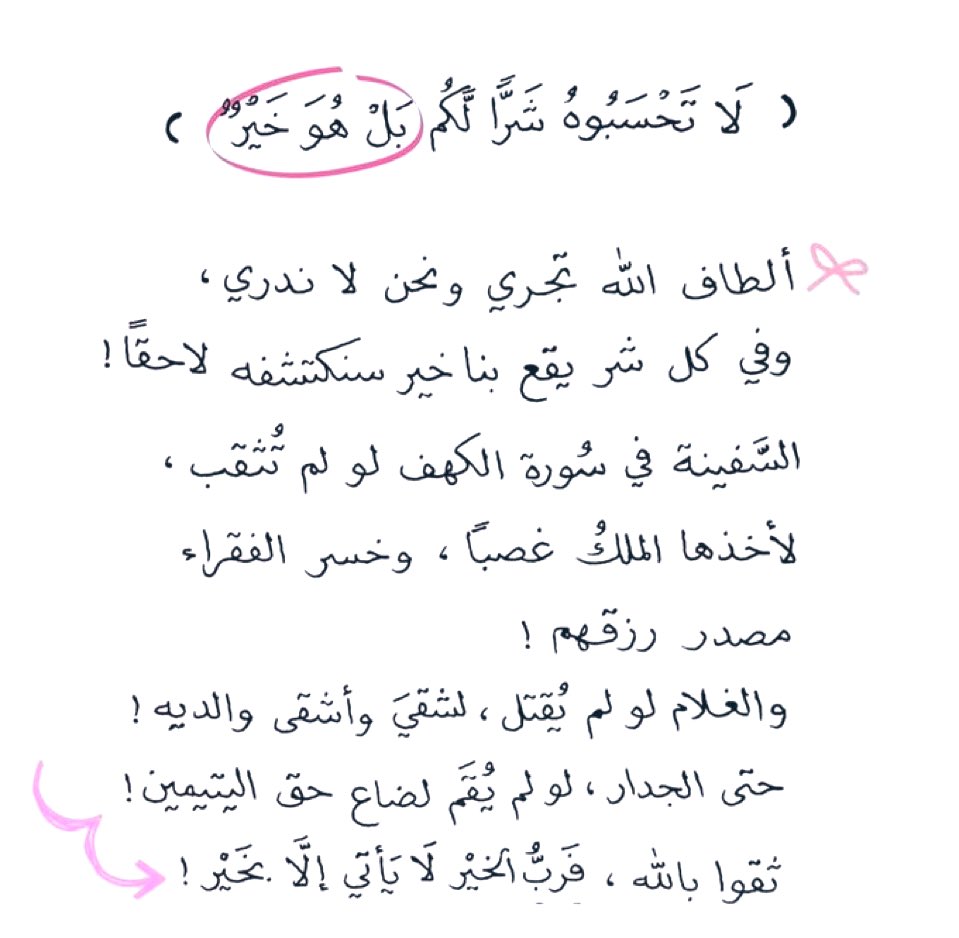 ( لَا تَحْسَبُوهُ شَرًّا لَّكُم بَلْ هُوَ خَيْرٌ )
ألطاف الله تجري ونحن لا ندري،
وفي كل شر يقع بنا خير سنكتشفه لاحقاً!
السَّفينة في سُورة الكهف لو لم تُثقب،
لأخذها الملكُ غصباً، وخسر الفقراء
مصدر رزقهم!
والغلام لو لم يُقتل، لشقيَ وأشقى والديه!
حتى الجدار، لو لم يُقَم لضاع حق اليتيمين!
ثقوا بالله، فَربُّ الخيْر لَا يَأتي إلَّا بخَيْر!